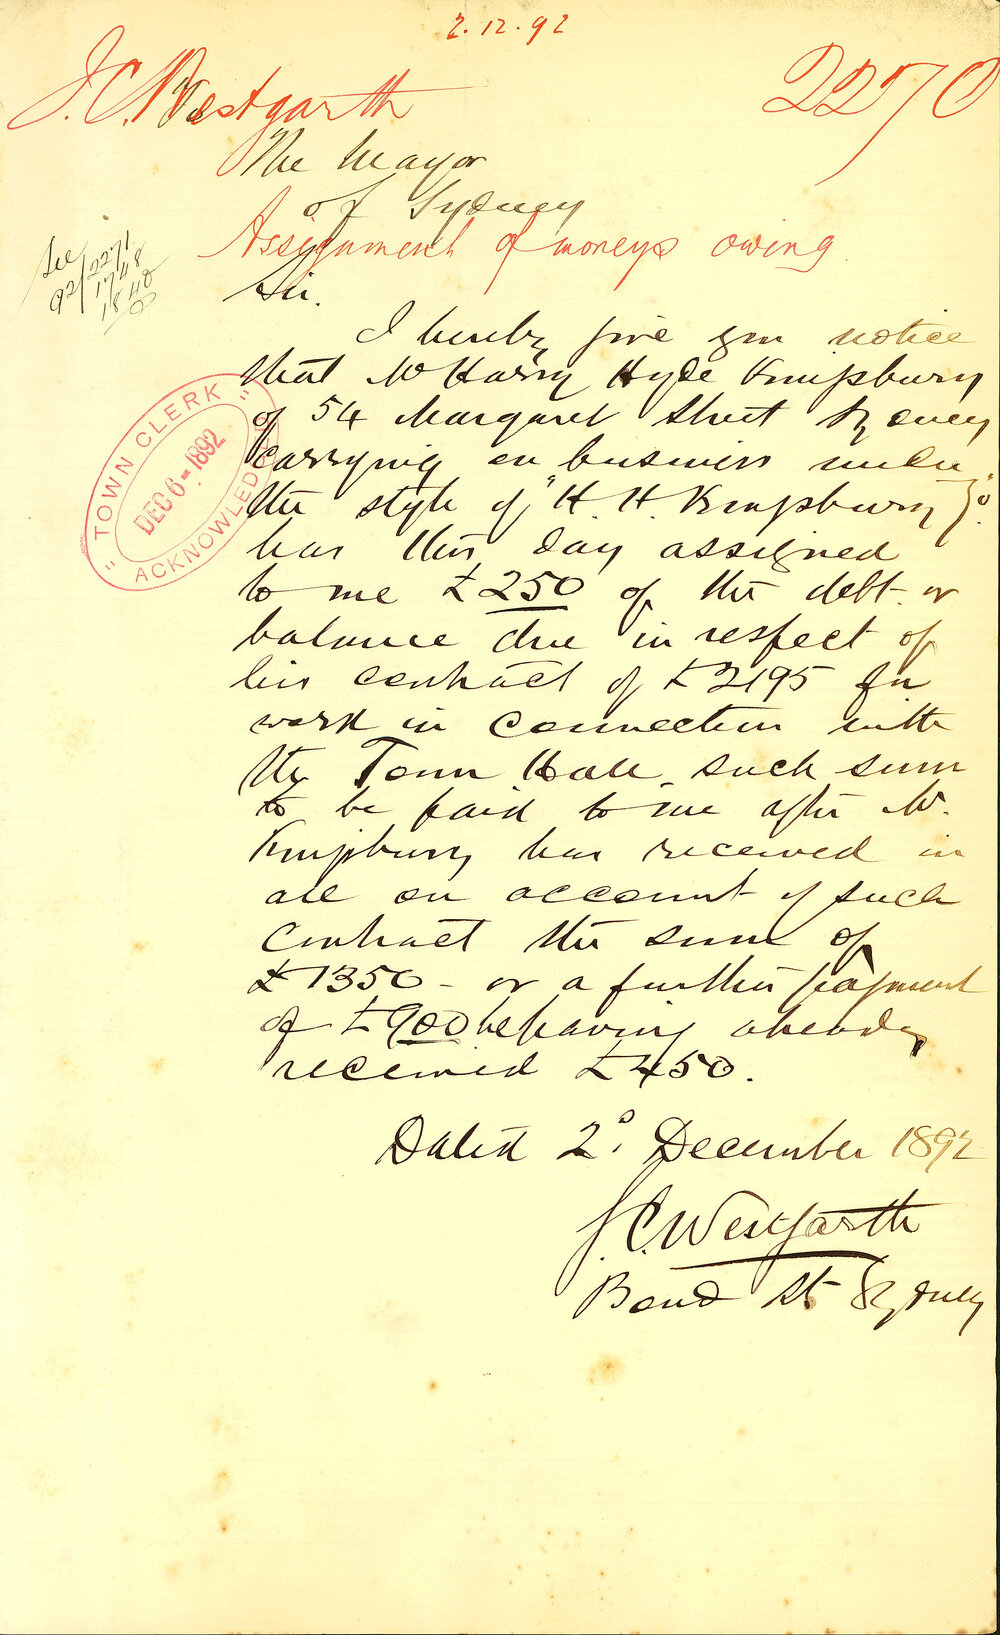 2.12.92
J. C. Westgarth
2270
The Mayor
of Sydney
Assignment of moneys owing
See
92/2271
1748
1840
Sir.
I hereby give you notice
that Mr Harry Hyde Kingsbury
of 54 Margaret Street Sydney
carrying on business under
the style of "H. H. Kingsbury &
has this day assigned
to me £250 of the debt or
balance due in respect of
his contract of £2195 for
work in connection with
the Town Hall, such sum
to be paid to me after Mr.
Kingsbury has received in
all on account of such
contract the sum of
£1350 - or a further payment
of £900 he having already
received £450.
Dated 2d. December 1892
J. C. Westgarth
Bond St Sydney
"TOWN CLERK"
DEC 6 - 1892
ACKNOWLEDGED